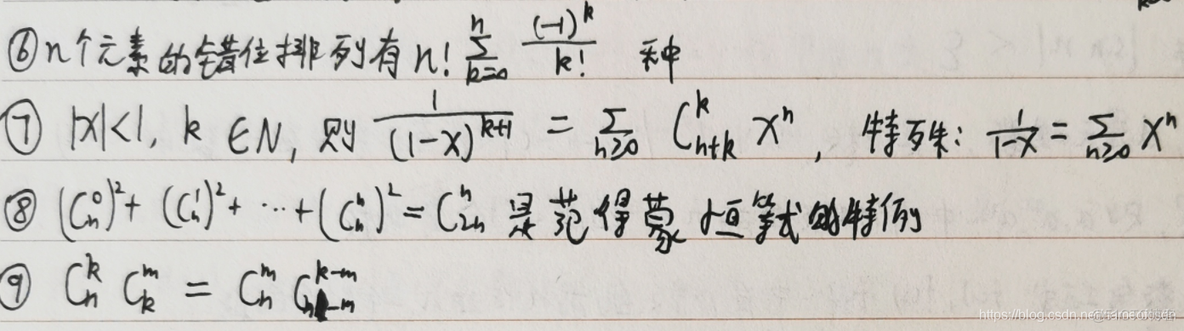 ⑥ n个元素的错位排列有 n! \sum_{k=0}^{n} \frac{(-1)^k}{k!} 种
⑦ |x|<1, k∈N, 则 \frac{1}{(1-x)^{k+1}} = \sum_{n≥0} C_{n+k}^{k} x^n , 特殊: \frac{1}{1-x} = \sum_{n≥0} x^n
⑧ (C_n^0)^2 + (C_n^1)^2 + ⋯ + (C_n^n)^2 = C_{2n}^n 是范得蒙恒等式的特例
⑨ C_n^k C_k^m = C_n^m C_{n-m}^{k-m}